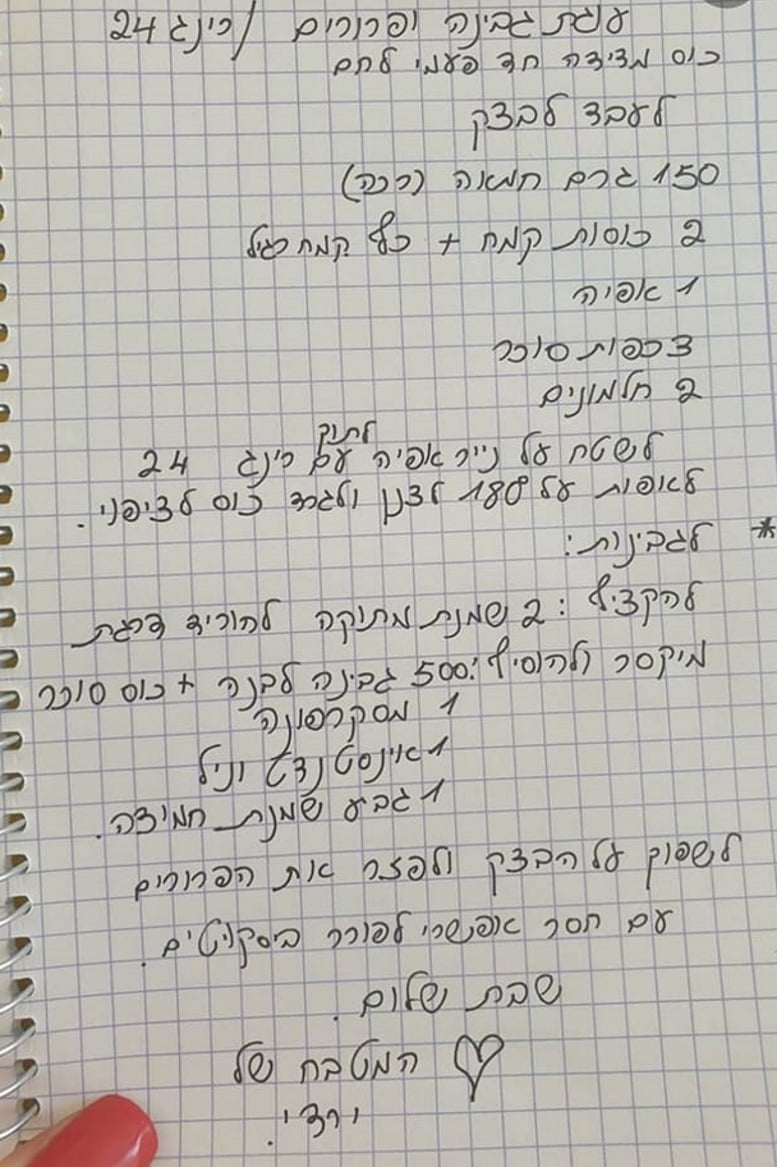 עוגת גבינה ופרורים / רינג 24
כוס מדידה חד פעמי לחם
לעבד לבצק
150 גרם חמאה (רכה)
2 כוסות קמח + כף קמח רגיל
1 אפיה
3 כפות סוכר
2 חלמונים
לשטח על נייר אפיה עם רינג 24
לתוך
לאפות על 180 לצנן ולגרר כוס לציפוי.
* לגבינות:
להקציף: 2 שמנת מתוקה להוריד דרגת
מיקסר ולהוסיף: 500 גבינה לבנה + כוס סוכר
1 מסקרפונה
1 אינסטנט וניל
1 גביע שמנת חמוצה.
לשפוך על הבצק ולפזר את הפרורים
עם חסר אפשרי לפורר ביסקויטים.
שבת שלום.
המטבח של
ורדי.